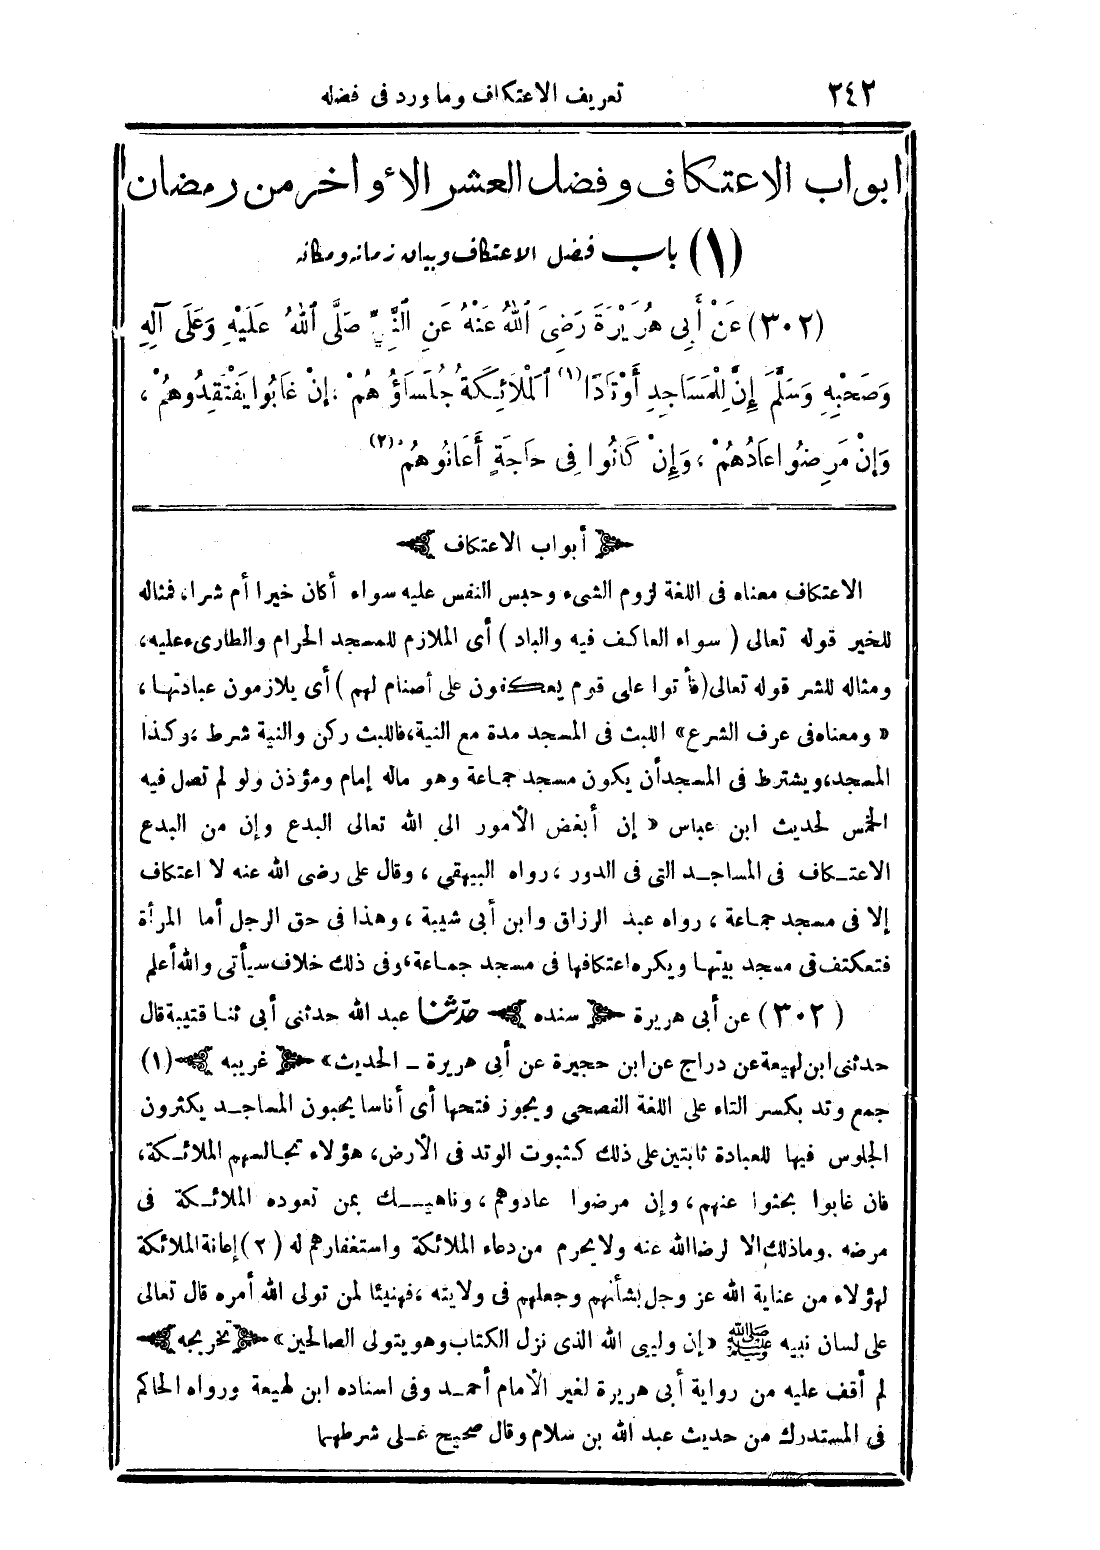 ٢٤٢ تعريف الاعتكاف وما ورد فى فضله
ابواب الاعتكاف وفضل العشر الأواخر من رمضان
(١) باب فضل الاعتكاف وبيان زمانه ومكانه
(٣٠٢) عَنْ أَبِى هُرَيْرَةَ رَضِىَ اللهُ عَنْهُ عَنِ النَّبِىِّ صَلَّى اللهُ عَلَيْهِ وَعَلَى آلِهِ
وَصَحْبِهِ وَسَلَّمَ إِنَّ لِلْمَسَاجِدِ أَوْتَادًا (١) الْمَلَائِكَةُ جُلَسَاؤُهُمْ ، إِنْ غَابُوا يَفْتَقِدُوهُمْ ،
وَإِنْ مَرِضُوا عَادُهُمْ ، وَإِنْ كَانُوا فِى حَاجَةٍ أَعَانُوهُمْ (٢)
أبواب الاعتكاف
الاعتكاف معناه فى اللغة لزوم الشىء وحبس النفس عليه سواء أكان خيرا أم شرا، فمثاله
للخير قوله تعالى ( سواء العاكف فيه والباد ) أى الملازم للمسجد الحرام والطارىء عليه،
ومثاله للشر قوله تعالى (فأتوا على قوم يعكفون على أصنام لهم ) أى يلازمون عبادتها ،
« ومعناه فى عرف الشرع» اللبث فى المسجد مدة مع النية، فاللبث ركن والنية شرط ، وكذا
المسجد، ويشترط فى المسجد أن يكون مسجد جماعة وهو ماله إمام ومؤذن ولو لم تصل فيه
الخمس لحديث ابن عباس « إن أبغض الأمور الى الله تعالى البدع وإن من البدع
الاعتكاف فى المساجد التى فى الدور ، رواه البيهقي ، وقال على رضى الله عنه لا اعتكاف
إلا فى مسجد جماعة ، رواه عبد الرزاق وابن أبى شيبة ، وهذا فى حق الرجل أما المرأة
فتعكتف فى مسجد بيتها ويكره اعتكافها فى مسجد جماعة، وفى ذلك خلاف سيأتى والله أعلم
(٣٠٢) عن أبى هريرة سنده حدّثنا عبد الله حدثنى أبى ثنا قتيبة قال
حدثنى ابن لهيعة عن دراج عن ابن حجيرة عن أبى هريرة ــ الحديث» غريبه (١)
جمع وتد بكسر التاء على اللغة الفصحى ويجوز فتحها أى أناسا يحبون المساجد يكثرون
الجلوس فيها للعبادة ثابتين على ذلك كثبوت الوتد فى الأرض، هؤلاء تجالسهم الملائكة،
فان غابوا بحثوا عنهم ، وإن مرضوا عادوهم ، وناهيك بمن تعوده الملائكة فى
مرضه . وما ذلك إلا لرضا الله عنه ولا يحرم من دعاء الملائكة واستغفارهم له (٢) إعانة الملائكة
لهؤلاء من عناية الله عز وجل بشأنهم وجعلهم فى ولايته ، فهنيئا لمن تولى الله أمره قال تعالى
على لسان نبيه ﷺ «إن وليى الله الذى نزل الكتاب وهو يتولى الصالحين» تخريجه
لم أقف عليه من رواية أبى هريرة لغير الأمام أحمد وفى اسناده ابن لهيعة ورواه الحاكم
فى المستدرك من حديث عبد الله بن سلام وقال صحيح على شرطهما